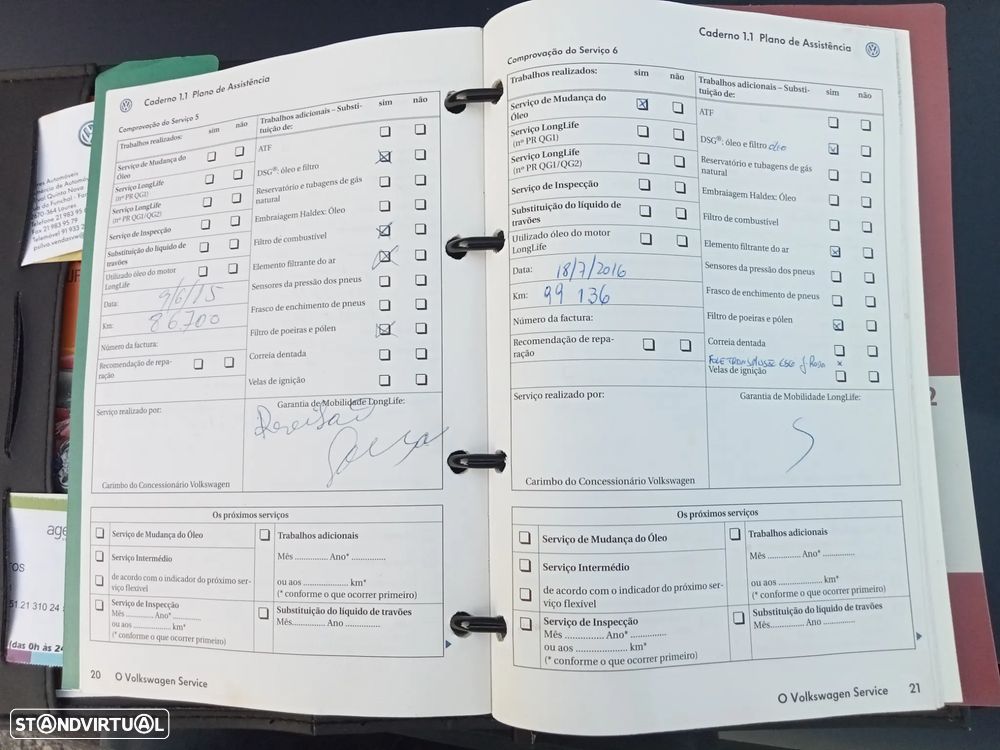 Caderno 1.1 Plano de Assistência
Comprovação do Serviço 5
Trabalhos realizados:
sim
não
Serviço de Mudança do
Óleo
Serviço LongLife
(nº PR QG1)
Serviço LongLife
(nº PR QG1/QG2)
Serviço de Inspecção
Substituição do líquido de
travões
Utilizado óleo do motor
LongLife
Data:
9/6/15
Km:
86700
Número da factura:
Recomendação de repa-
ração
Trabalhos adicionais – Substi-
tuição de:
sim
não
ATF
DSG®: óleo e filtro
Reservatório e tubagens de gás
natural
Embraiagem Haldex: Óleo
Filtro de combustível
Elemento filtrante do ar
Sensores da pressão dos pneus
Frasco de enchimento de pneus
Filtro de poeiras e pólen
Correia dentada
Velas de ignição
Serviço realizado por:
Garantia de Mobilidade LongLife:
Revisão
Carimbo do Concessionário Volkswagen
Os próximos serviços
Serviço de Mudança do Óleo
Serviço Intermédio
de acordo com o indicador do próximo ser-
viço flexível
Serviço de Inspecção
Mês .............. Ano* ..............
ou aos ........................ km*
(* conforme o que ocorrer primeiro)
Trabalhos adicionais
Mês .............. Ano* ..............
ou aos ........................ km*
(* conforme o que ocorrer primeiro)
Substituição do líquido de travões
Mês.............. Ano ..............
20 O Volkswagen Service
Caderno 1.1 Plano de Assistência
Comprovação do Serviço 6
Trabalhos realizados:
sim
não
Serviço de Mudança do
Óleo
Serviço LongLife
(nº PR QG1)
Serviço LongLife
(nº PR QG1/QG2)
Serviço de Inspecção
Substituição do líquido de
travões
Utilizado óleo do motor
LongLife
Data:
18/7/2016
Km:
99 136
Número da factura:
Recomendação de repa-
ração
Trabalhos adicionais – Substi-
tuição de:
sim
não
ATF
DSG®: óleo e filtro óleo
Reservatório e tubagens de gás
natural
Embraiagem Haldex: Óleo
Filtro de combustível
Elemento filtrante do ar
Sensores da pressão dos pneus
Frasco de enchimento de pneus
Filtro de poeiras e pólen
Correia dentada
Velas de ignição
Serviço realizado por:
Garantia de Mobilidade LongLife:
Carimbo do Concessionário Volkswagen
Os próximos serviços
Serviço de Mudança do Óleo
Serviço Intermédio
de acordo com o indicador do próximo ser-
viço flexível
Serviço de Inspecção
Mês .............. Ano* ..............
ou aos ........................ km*
(* conforme o que ocorrer primeiro)
Trabalhos adicionais
Mês .............. Ano* ..............
ou aos ........................ km*
(* conforme o que ocorrer primeiro)
Substituição do líquido de travões
Mês.............. Ano ..............
O Volkswagen Service 21
2670-364 Loures
STANDVIRTUAL